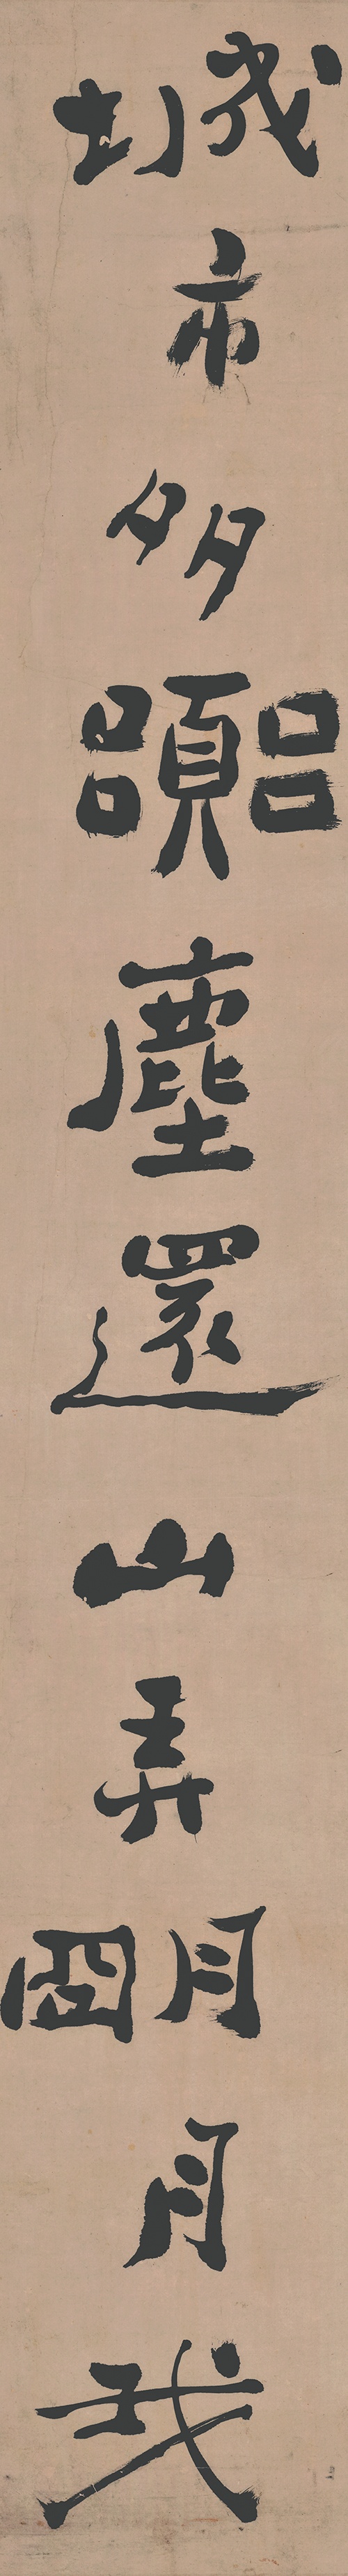 城市多囂塵還山弄明月我